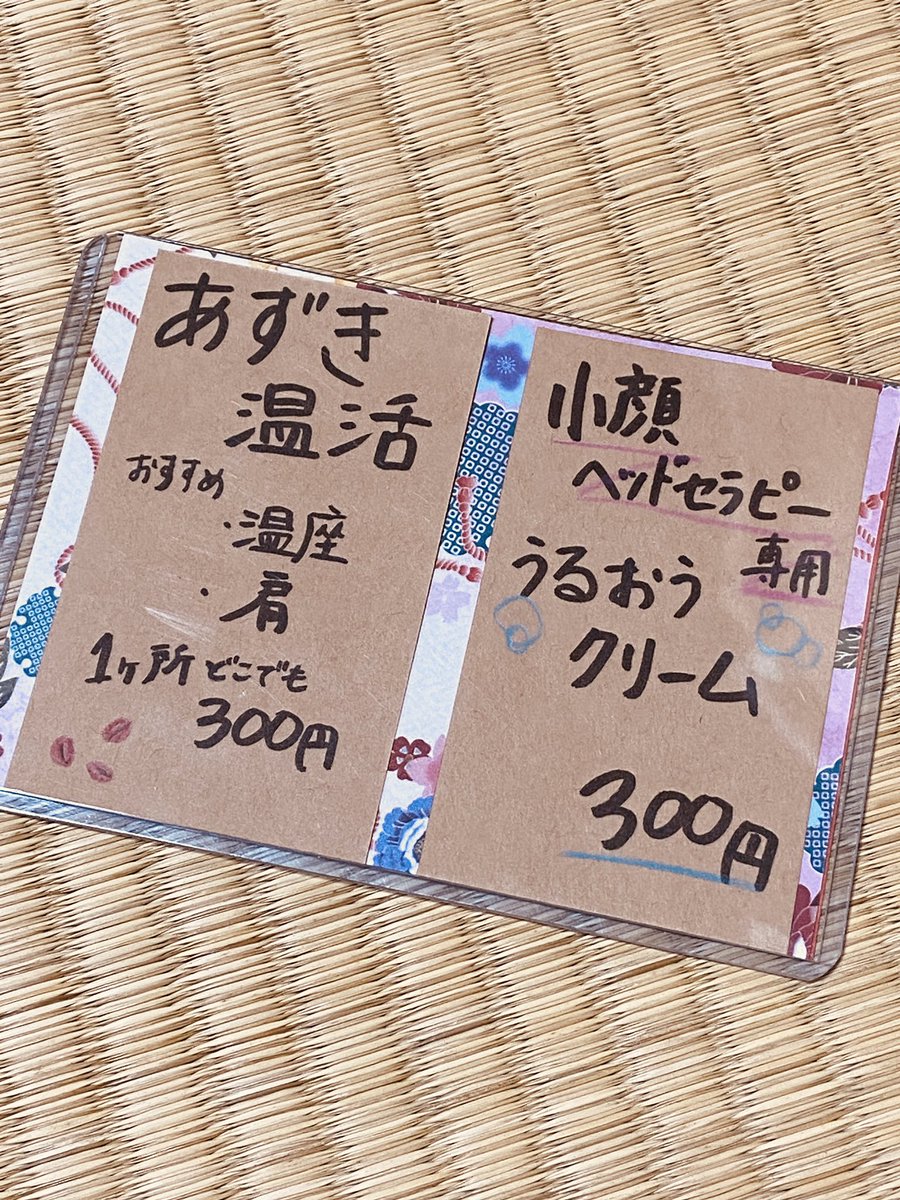 あずき
温活
おすすめ
・温座
・肩
1ヶ所どこでも
300円
小顔
ヘッドセラピー
専用
うるおう
クリーム
300円